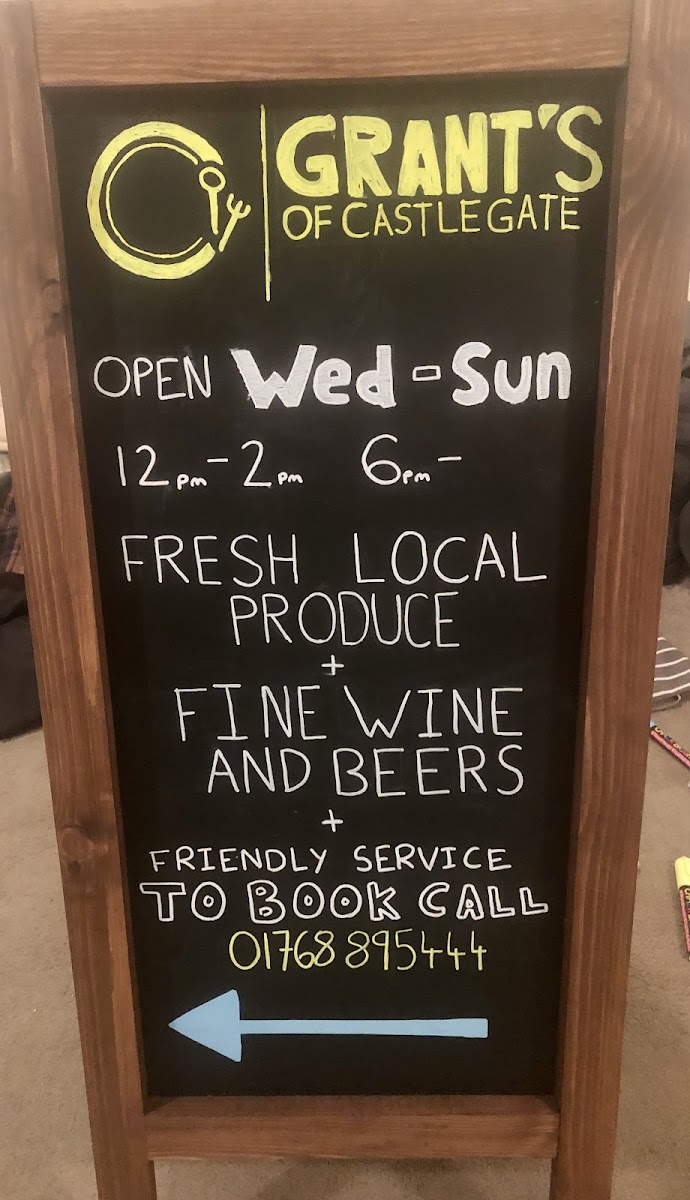 GRANT'S
OF CASTLEGATE
OPEN Wed-Sun
12pm-2pm 6pm-
FRESH LOCAL
PRODUCE
+
FINE WINE
AND BEERS
+
FRIENDLY SERVICE
TO BOOK CALL
01768 895444